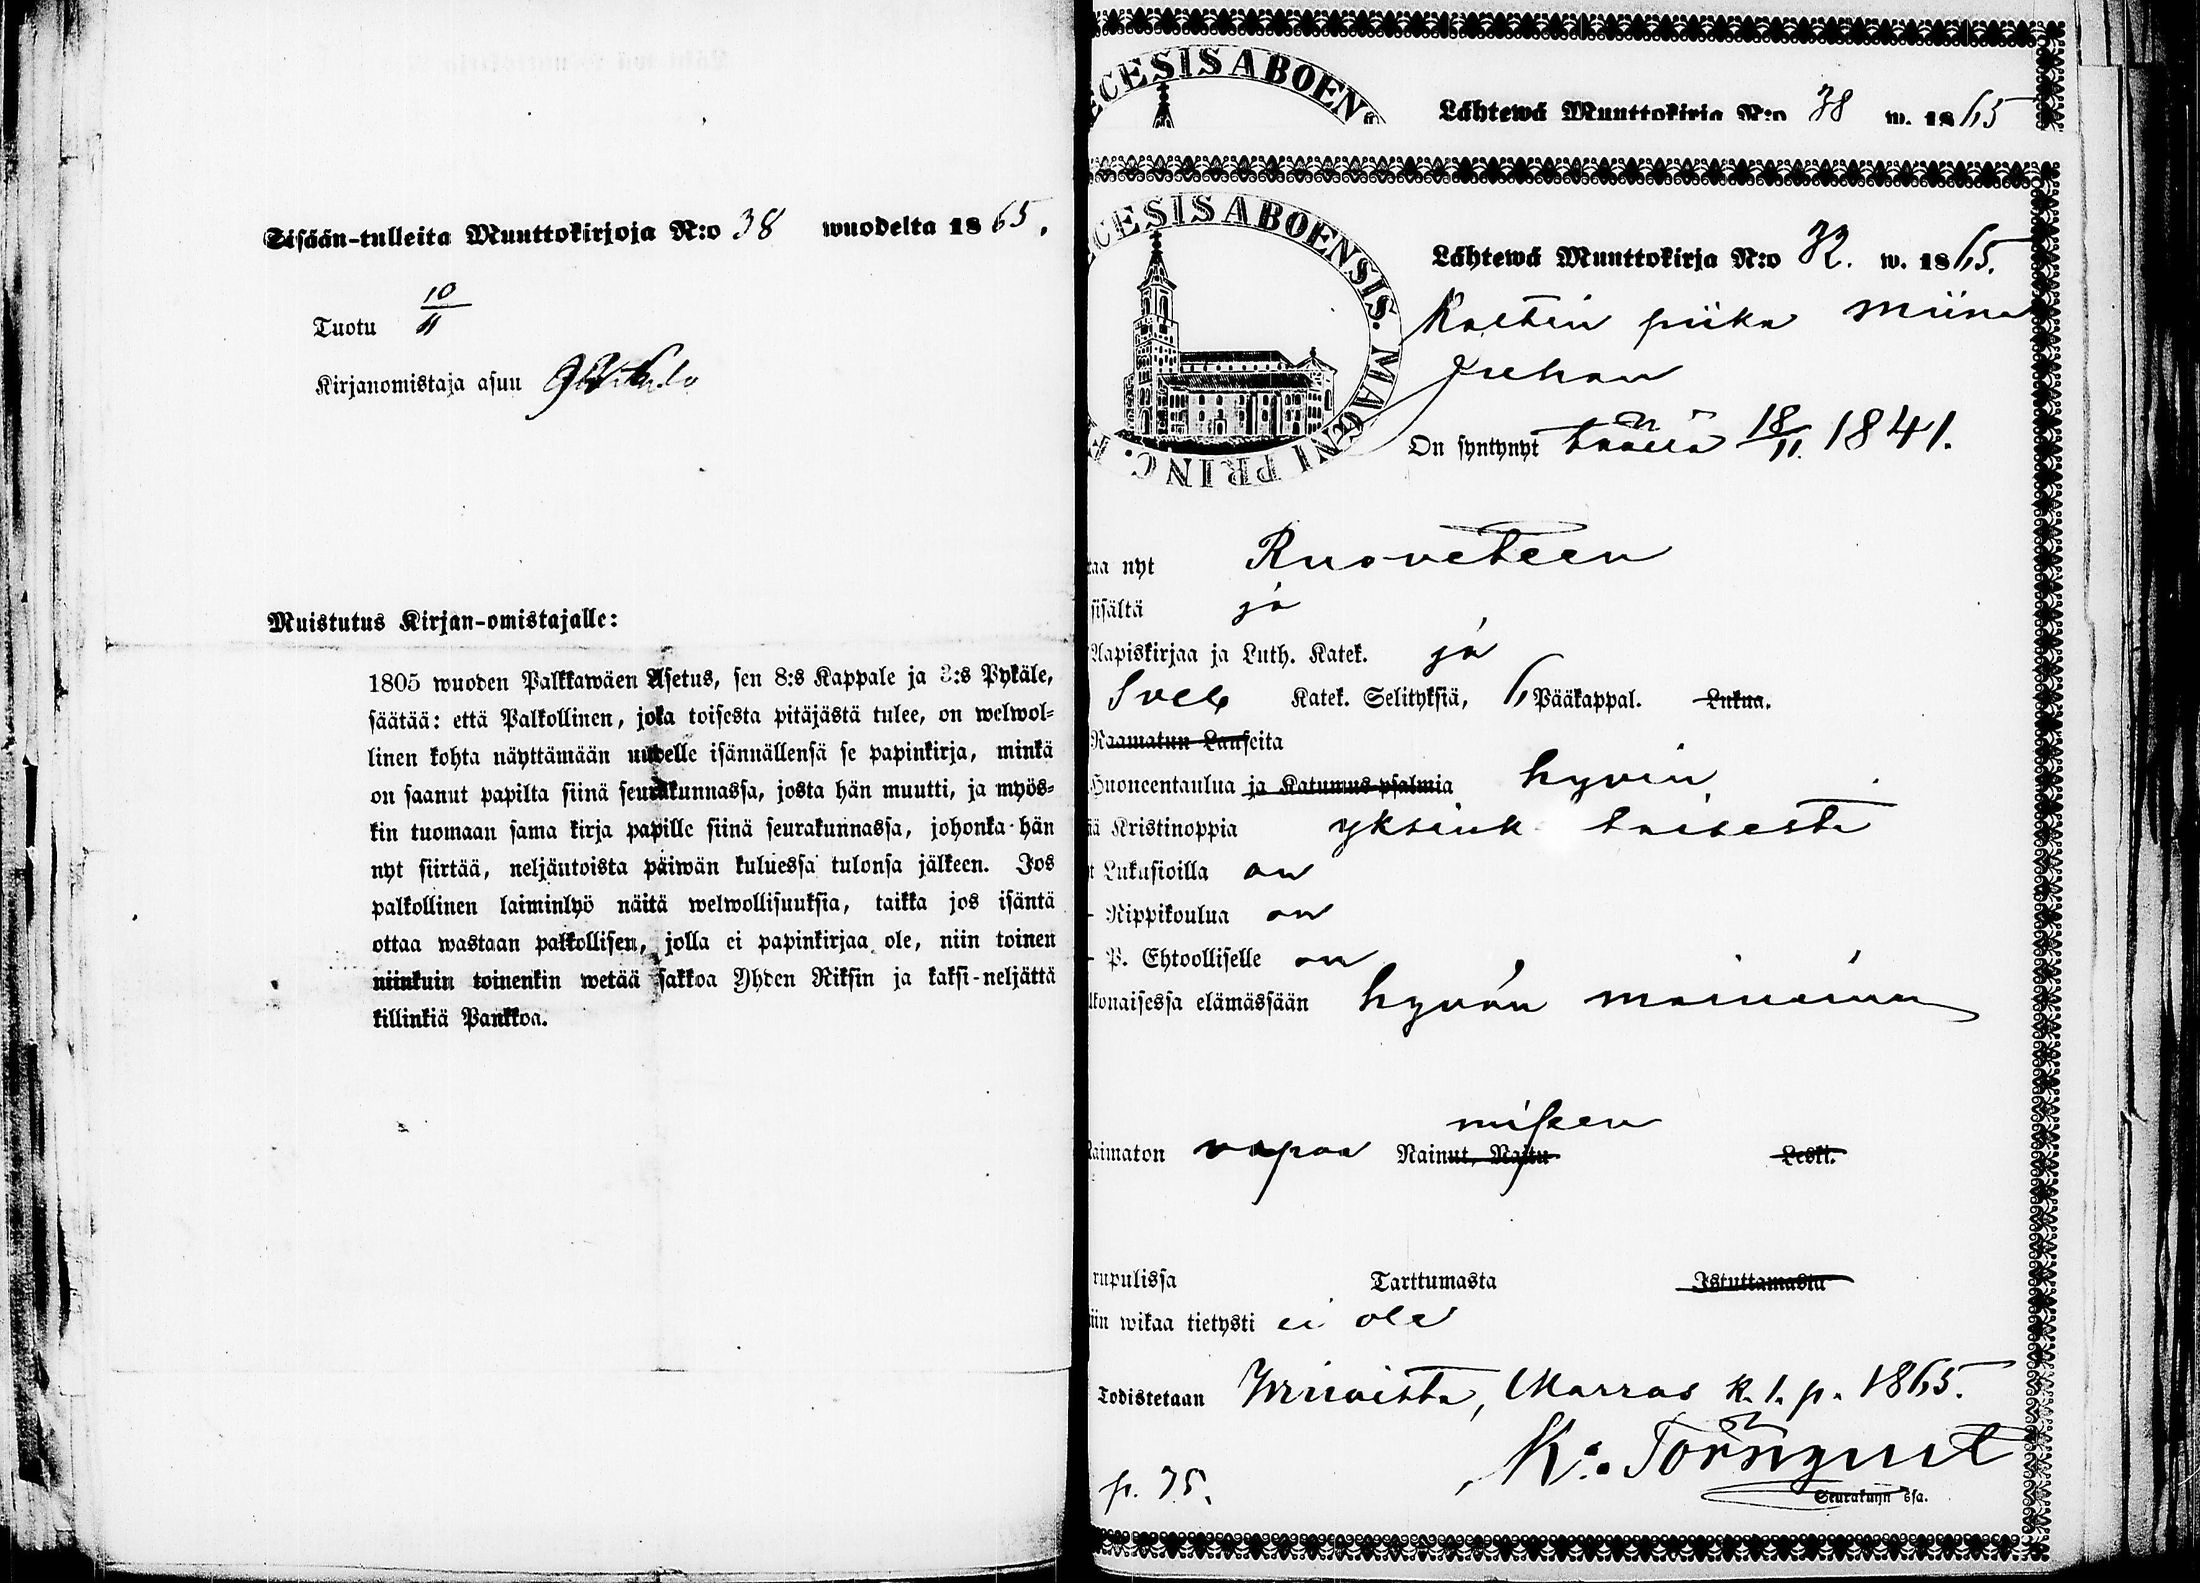 Sisään-tulleita Muuttokirjoja N:o 38 wuodelta 1865.
Tuotu 10/11
Kirjanomistaja asuu
Muistutus Kirjan-omistajalle:
1805 wuoden Palkkawäen Asetus, sen 8:s Kappale ja 3:s Pykäle,
säätää: että Palkollinen, joka toisesta pitäjästä tulee, on welwol-
linen kohta näyttämään uudelle isännällensä se papinkirja, minkä
on saanut papilta siinä seurakunnassa, josta hän muutti, ja myös-
kin tuomaan sama kirja papille siinä seurakunnassa, johonka hän
nyt siirtää, neljäntoista päiwän kuluessa tulonsa jälkeen. Jos
palkollinen laiminlyö näitä welwollisuuksia, taikka jos isäntä
ottaa wastaan palkollisen, jolla ei papinkirjaa ole, niin toinen
niinkuin toinenkin wetää sakkoa Yhden Riksin ja kaksi-neljättä
killinkiä Pankkoa.
ECESIS ABOENS
Lähtewä Muuttokirja N:o 38 w. 1865
ECESIS ABOENSIS. MAGNI PRINC. F
Lähtewä Muuttokirja N:o 32. w. 1865.
piika Miina
Juhan
On syntynyt täällä 18/11. 1841.
taa nyt Ruoveteen
sisältä ja
Aapiskirjaa ja Luth. Katek. ja
Sveb Katek. Selityksiä, 6 Pääkappal. Lukua.
Raamatun Lauseita
Huoneentaulua ja Katumus-psalmia hyvin
iä Kristinoppia yksink. taisesti
t Lukusioilla on
- Rippikoulua on
- P. Ehtoolliselle on
lkonaisessa elämässään hyvän maineinen
naimaton vapaa Nainut, Naitu Leski.
rupulissa Tarttumasta Istuttamasta
iin wikaa tietysti ei ole
Todistetaan Marras k. 1. p. 1865.
K. Törnqvist
Seurakunn ssa.
p. 75.